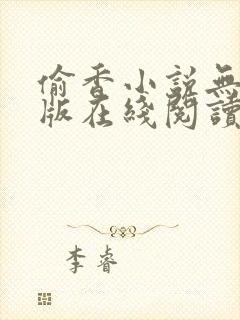 偷香小説無
版在綫閱讀
李睿